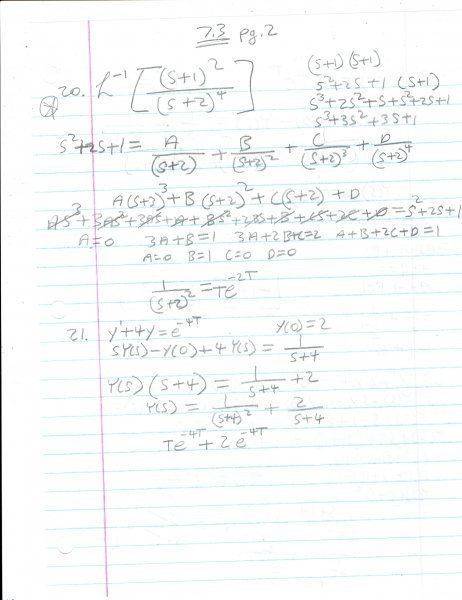 7.3 pg.2
20. L^-1 [ (s+1)^2 / (s+2)^4 ]
(s+1)(s+1)
s^2+2s+1 (s+1)
s^3+2s^2+s+s^2+2s+1
s^3+3s^2+3s+1
s^2+2s+1 = A/(s+2) + B/(s+2)^2 + C/(s+2)^3 + D/(s+2)^4
A(s+2)^3+B(s+2)^2+C(s+2)+D
As^3+3As^2+3As+A+Bs^2+2Bs+B+Cs+2C+D=s^2+2s+1
A=0 3A+B=1 3A+2B+C=2 A+B+2C+D=1
A=0 B=1 C=0 D=0
1/(s+2)^2 = Te^-2T
21. y'+4y=e^-4T y(0)=2
sY(s)-y(0)+4Y(s) = 1/s+4
Y(s)(s+4) = 1/s+4 +2
Y(s) = 1/(s+4)^2 + 2/s+4
Te^-4T+2e^-4T